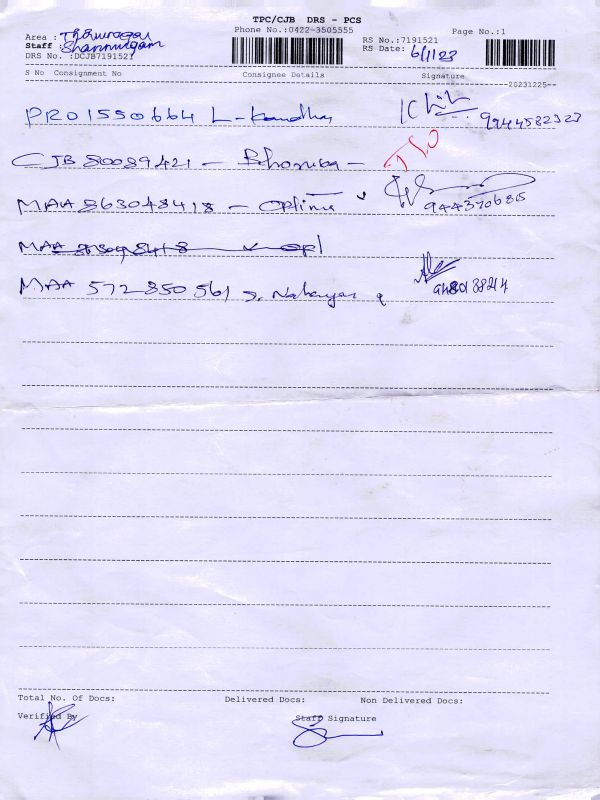 TPC/CJB DRS - PCS
Phone No.:0422-3505555
Page No.:1
Area :
Staff : Shanmugam
DRS No. :DCJB7191521
RS No.:7191521
RS Date: 6/1/23
S No Consignment No Consignee Details Signature
20231225
PRO1550664 L-Kandha 9944582323
CJB 80089421 -
MAA 863048418 - Optima 944370685
MAA 863048418 opl
MAA 572850561 S.
Total No. Of Docs: Delivered Docs: Non Delivered Docs:
Verified By Staff Signature